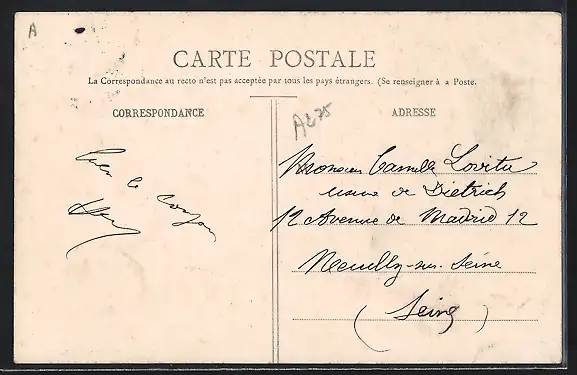 A
CARTE POSTALE
La Correspondance au recto n'est pas acceptée par tous les pays étrangers. (Se renseigner à a Poste.
CORRESPONDANCE
ADRESSE
Monsieur Camille Lovitu
de Dietrich
12 Avenue de Madrid 12
Neuilly-sur-Seine
(Seine)